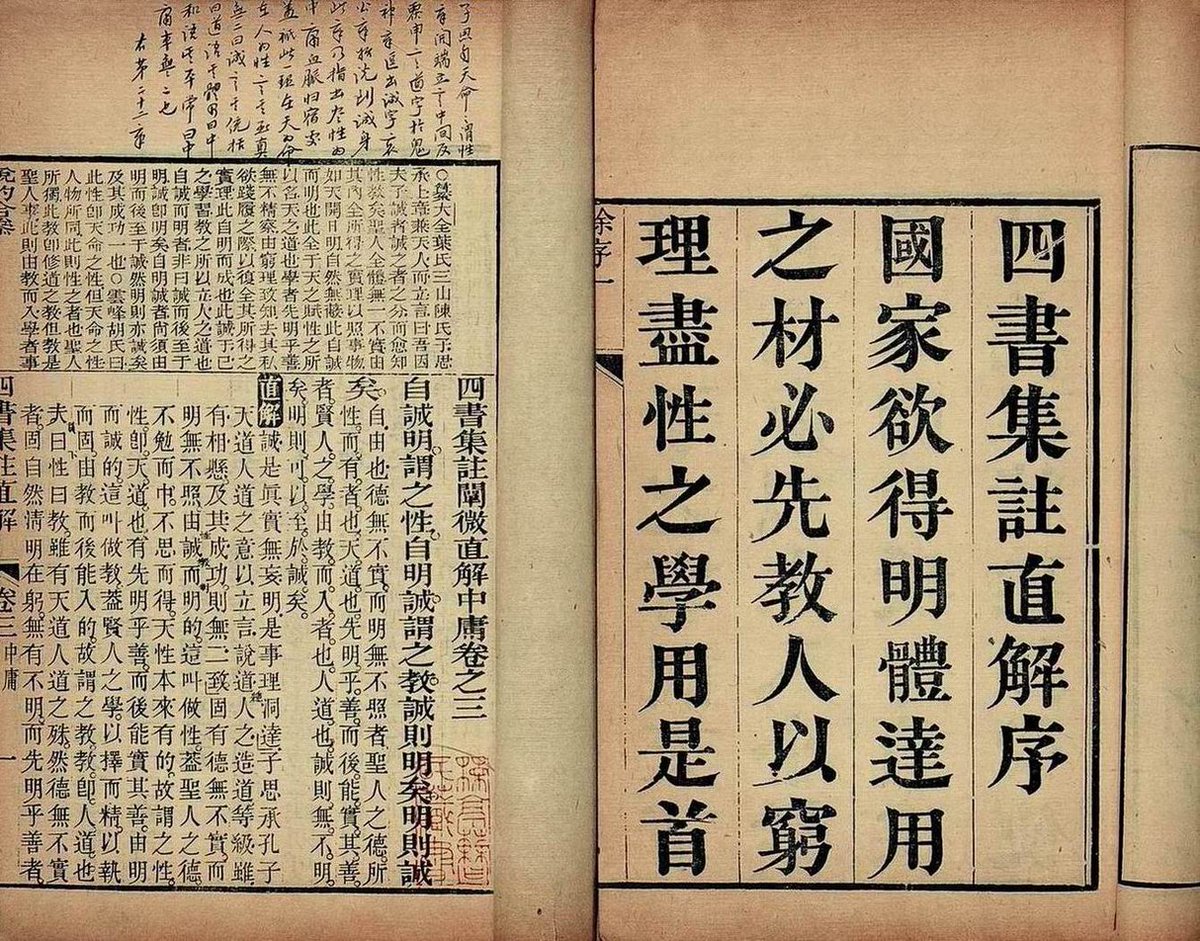 四書集註直解序
國家欲得明體達用
之材必先教人以窮
理盡性之學用是首
子思自天命之謂性
章開端立言中間反
覆申一道字於鬼
神章匣出誠字哀
公章 到誠身
此章乃指出盡性的
中庸血脈歸宿處
蓋秪此一理在天为命
在人为性言其至真
無二曰誠言其統括
曰道語其體用曰中
和語其平常曰中
庸本無二也
右第二十二章
○纂大全葉氏三山陳氏子思
承上章兼天人而立言曰吾因
夫子誠者誠之者之分而愈知
性教矣聖人全體無一不實由
其內全所得之實理以照事物
如天開日明自然無蔽此自誠
而明也此全于天之賦性之所
以名天之道也學者先明乎善
無不精察由窮理致知去其私
欲踐履之際以復全其所得之
實理此自明而成也此誠于己
之學習教之所以立人之道也
自誠而明者非曰誠而後至于
明誠即明矣自明誠者尚須由
明而後至于誠然明則亦誠矣
及其成功一也○雲峰胡氏曰
此性即天命之性但天命之性
人物所同此則性之者也聖人
所獨此教即修道之教但教是
聖人事此則由教而入學者事
四書集註闡微直解中庸卷之三
自誠明謂之性自明誠謂之教誠則明矣明則誠
矣。自由也德無不實而明無不照者聖人之德所
性而有者也天道也先明乎善而後能實其善
者賢人之學由教而入者也人道也誠則無不明
矣明則可以至於誠矣
直解誠是真實無妄明是事理洞達子思承孔子
天道人道之意以立言說道人之造道等級雖
有相懸及其成功則無二致固有德無不實而
明無不照由誠而明的這叫做性蓋聖人之德
不勉而中不思而得天性本來有的故謂之性
性即天道也有先明乎善而後能實其善由明
而誠的這叫做教蓋賢人之學以擇而精以執
而固由教而後能入的故謂之教教即人道也
夫曰性曰教雖有天道人道之殊然德無不實
者固自然清明在躬無有不明而先明乎善者
四書集註直解 卷三 中庸 一